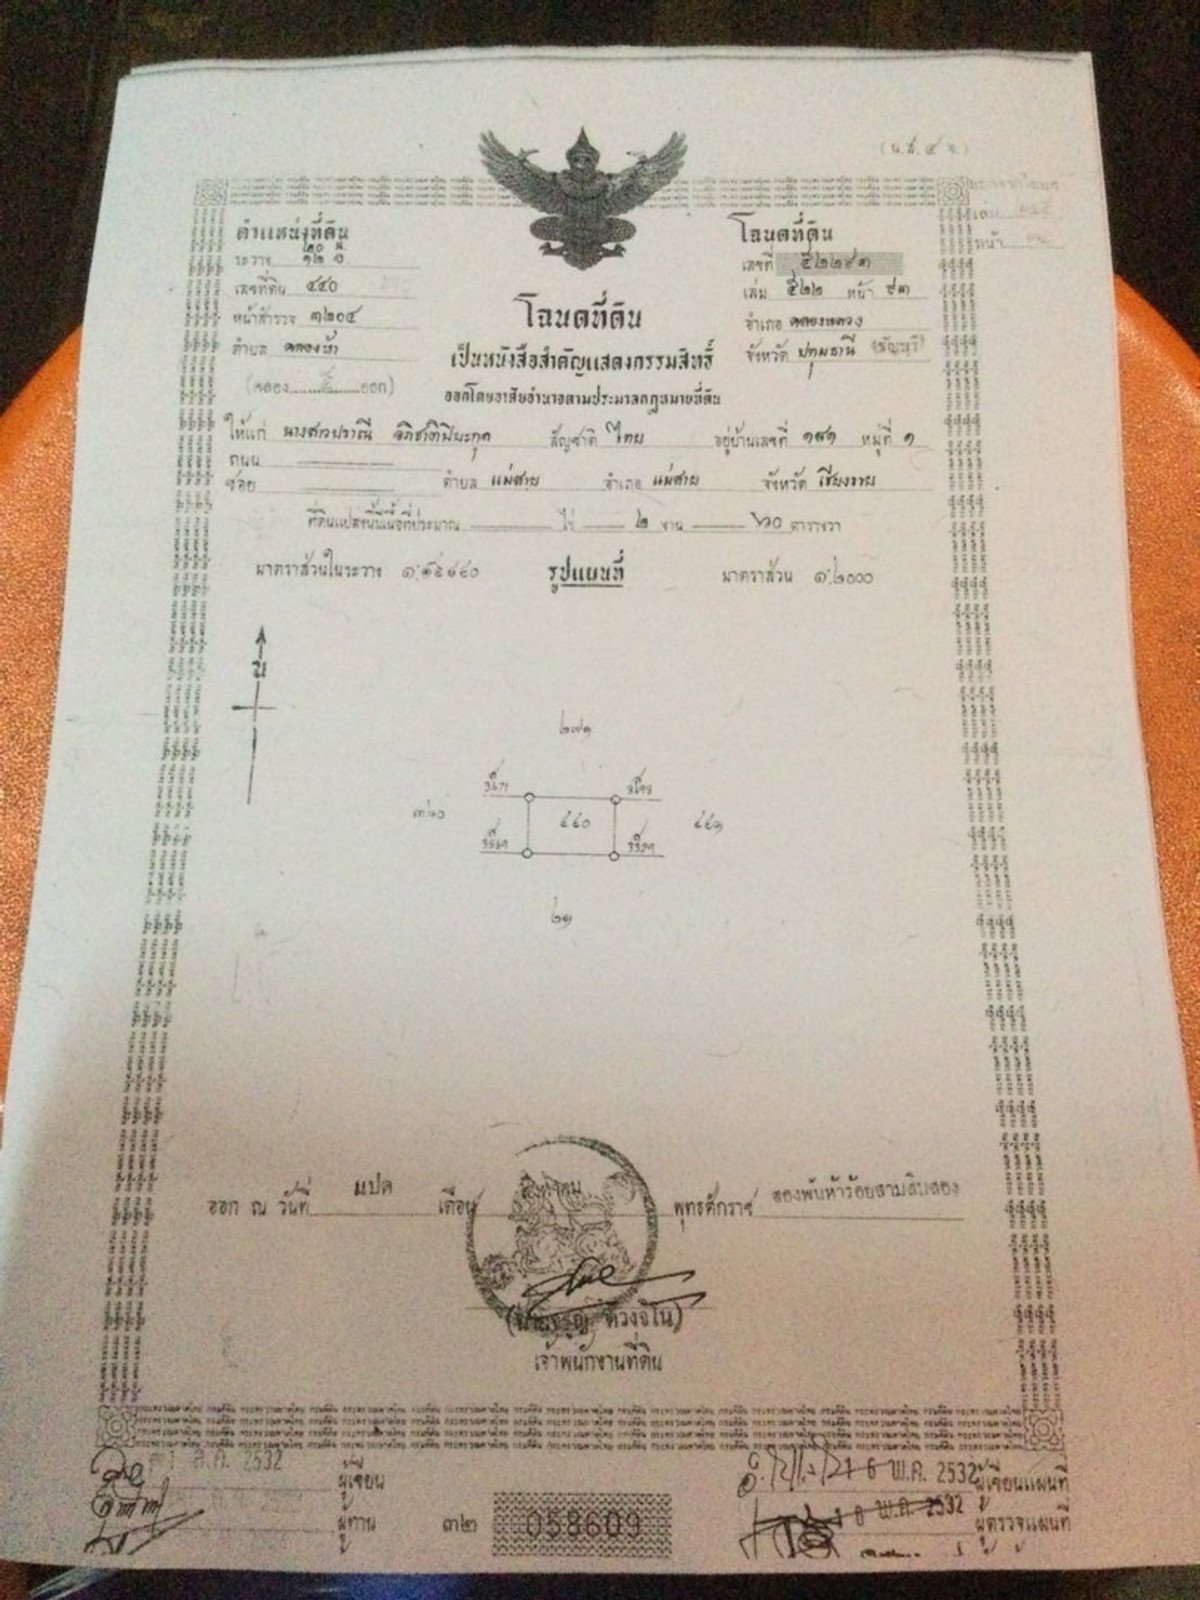 (น.ส.๔ จ.)
ตำแหน่งที่ดิน
ระวาง
เลขที่ดิน ๔๔๐
หน้าสำรวจ ๓๒๐๔
ตำบล คลองห้า
(คลอง ๕ ออก)
โฉนดที่ดิน
เลขที่ ๕๒๒๙๓
เล่ม ๕๒๒ หน้า ๙๓
อำเภอ คลองหลวง
จังหวัด ปทุมธานี (ธัญบุรี)
โฉนดที่ดิน
เป็นหนังสือสำคัญแสดงกรรมสิทธิ์
ออกโดยอาศัยอำนาจตามประมวลกฎหมายที่ดิน
ให้แก่ นางสาวปราณี อภิชาติปิยะกุล สัญชาติ ไทย อยู่บ้านเลขที่ ๑๙๑ หมู่ที่ ๑
ถนน
ซอย ตำบล แม่สาย อำเภอ แม่สาย จังหวัด เชียงราย
ที่ดินแปลงนี้มีเนื้อที่ประมาณ ไร่ ๒ งาน ๖๐ ตารางวา
มาตราส่วนในระวาง รูปแผนที่ มาตราส่วน ๑:๒๐๐๐
น
๒๗๑
๔๔๐
๔๔๑
๒๑
ออก ณ วันที่ แปด เดือน สิงหาคม พุทธศักราช สองพันห้าร้อยสามสิบสอง
เจ้าพนักงานที่ดิน
ส.ค. 2532 ผู้เขียน
ผู้ทาน
๓๒
058609
6 พ.ค. 2532 ผู้เขียนแผนที่
พ.ค. 2532 ผู้ตรวจแผนที่